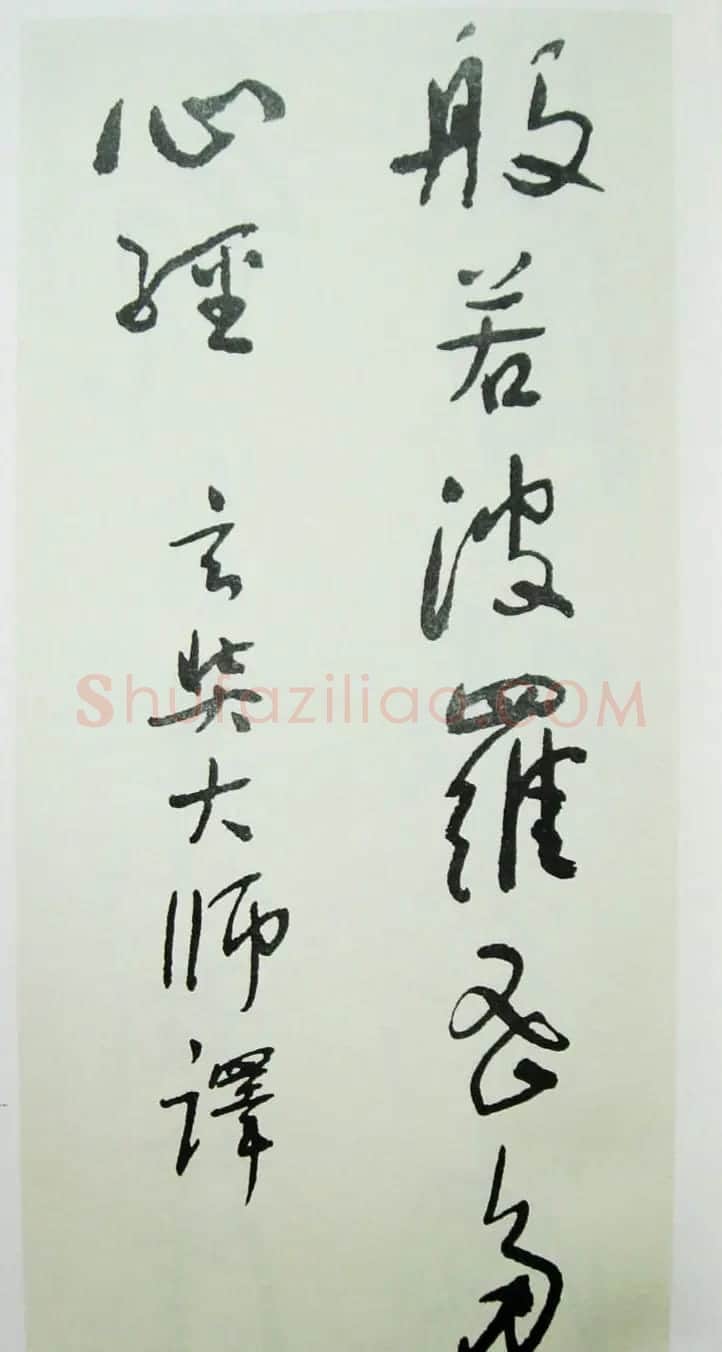 般若波羅蜜多
心經 玄奘大师譯
Shufaziliao.COM